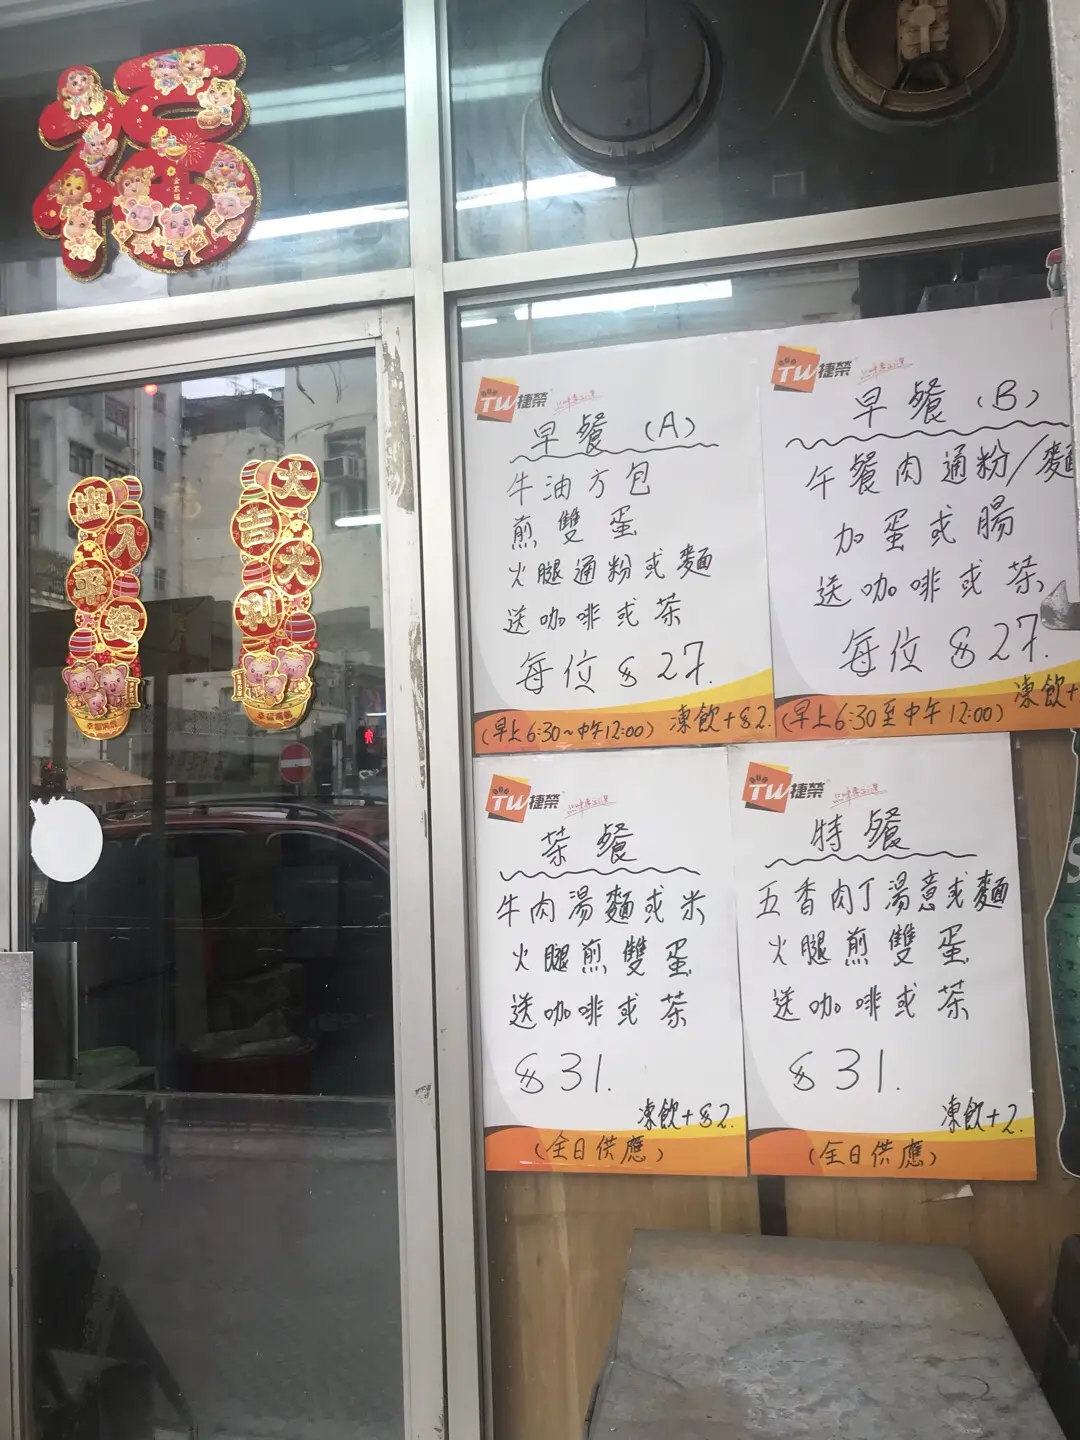 福
出入平安
大吉大利
TW捷榮
早餐 (A)
牛油方包
煎雙蛋
火腿通粉或麵
送咖啡或茶
每位 $27.
凍飲+$2.
(早上6:30~中午12:00)
TW捷榮
早餐 (B)
午餐肉通粉/麵
加蛋或腸
送咖啡或茶
每位 $27.
凍飲+
(早上6:30至中午12:00)
TW捷榮
茶餐
牛肉湯麵或米
火腿煎雙蛋
送咖啡或茶
$31.
凍飲+$2.
(全日供應)
TW捷榮
特餐
五香肉丁湯意或麵
火腿煎雙蛋
送咖啡或茶
$31.
凍飲+2.
(全日供應)